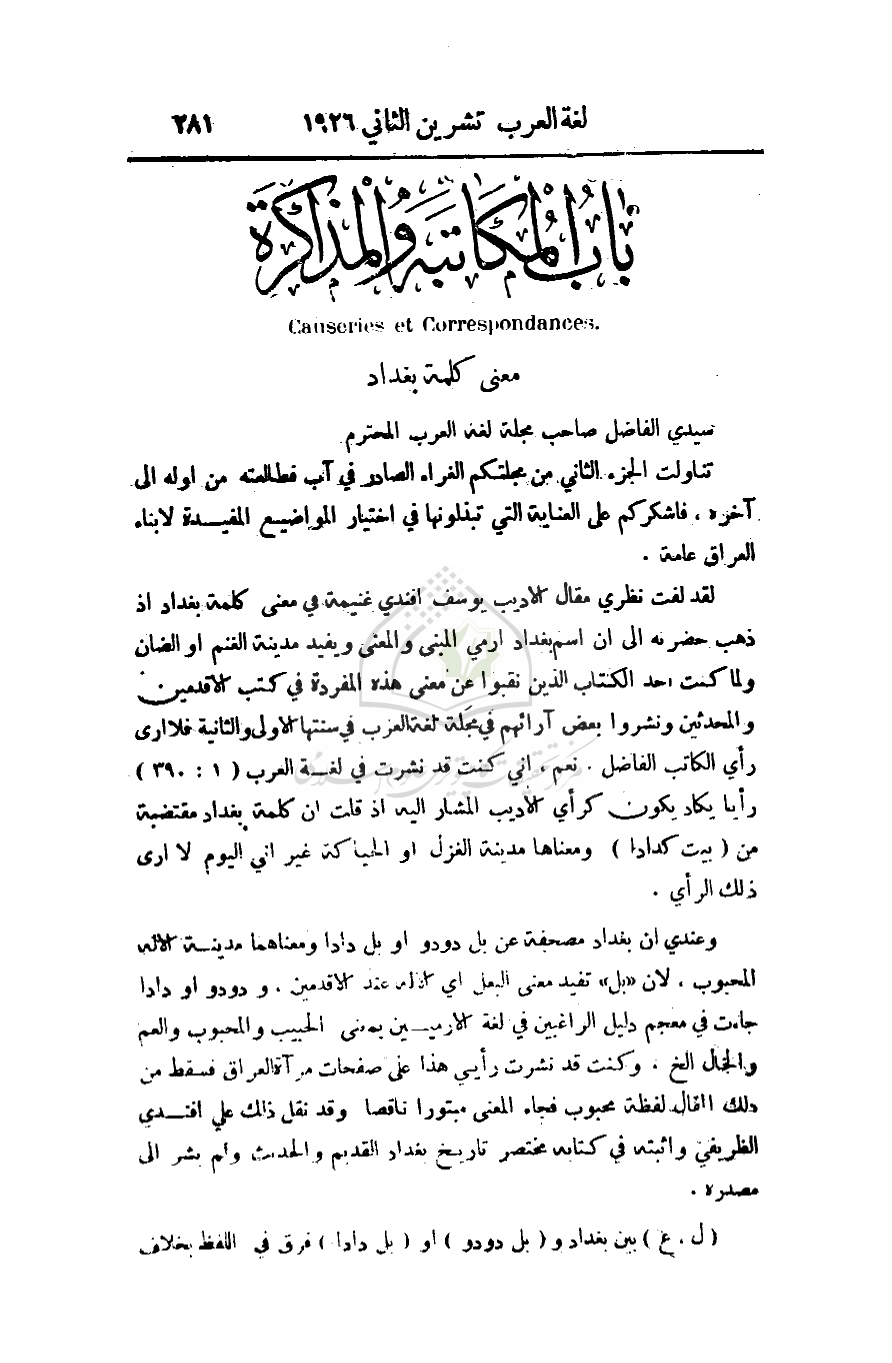 لغة العرب تشرين الثاني ١٩٢٦ ٢٨١
باب المكاتبة والمذاكرة
Causeries et Correspondances.
معنى كلمة بغداد
سيدي الفاضل صاحب مجلة لغة العرب المحترم
تناولت الجزء الثاني من مجلتكم الغراء الصادر في آب فطالعته من اوله الى
آخره ، فاشكركم على العناية التي تبذلونها في اختيار المواضيع المفيدة لابناء
العراق عامة .
لقد لفت نظري مقال الاديب يوسف افندي غنيمة في معنى كلمة بغداد اذ
ذهب حضرته الى ان اسم بغداد ارمي المبنى والمعنى ويفيد مدينة الغنم او الضان
ولما كنت احد الكتاب الذين نقبوا عن معنى هذه المفردة في كتب الاقدمين
والمحدثين ونشروا بعض آرائهم في مجلة لغة العرب في سنتها الاولى والثانية فلا ارى
رأي الكاتب الفاضل . نعم ، اني كنت قد نشرت في لغة العرب ( ١ : ٣٩٠ )
رأيا يكاد يكون كرأي الاديب المشار اليه اذ قلت ان كلمة بغداد مقتضبة
من ( بيت كدادا ) ومعناها مدينة الغزل او الحياكة غير اني اليوم لا ارى
ذلك الرأي .
وعندي ان بغداد مصحفة عن بل دودو او بل دادا ومعناهما مدينة الاله
المحبوب ، لان «بل» تفيد معنى البعل اي الاله عند الاقدمين . و دودو او دادا
جاءت في معجم دليل الراغبين في لغة الارميين بمعنى الحبيب والمحبوب والعم
والخال الخ . وكنت قد نشرت رأيي هذا على صفحات مرآة العراق فسقط من
ذلك المقال لفظة محبوب فجاء المعنى مبتورا ناقصا وقد نقل ذالك علي افندي
الظريفي واثبته في كتابه مختصر تاريخ بغداد القديم والحديث ولم يشر الى
مصدره .
( ل . ع ) بين بغداد و ( بل دودو ) او ( بل دادا ) فرق في اللفظ بخلاف